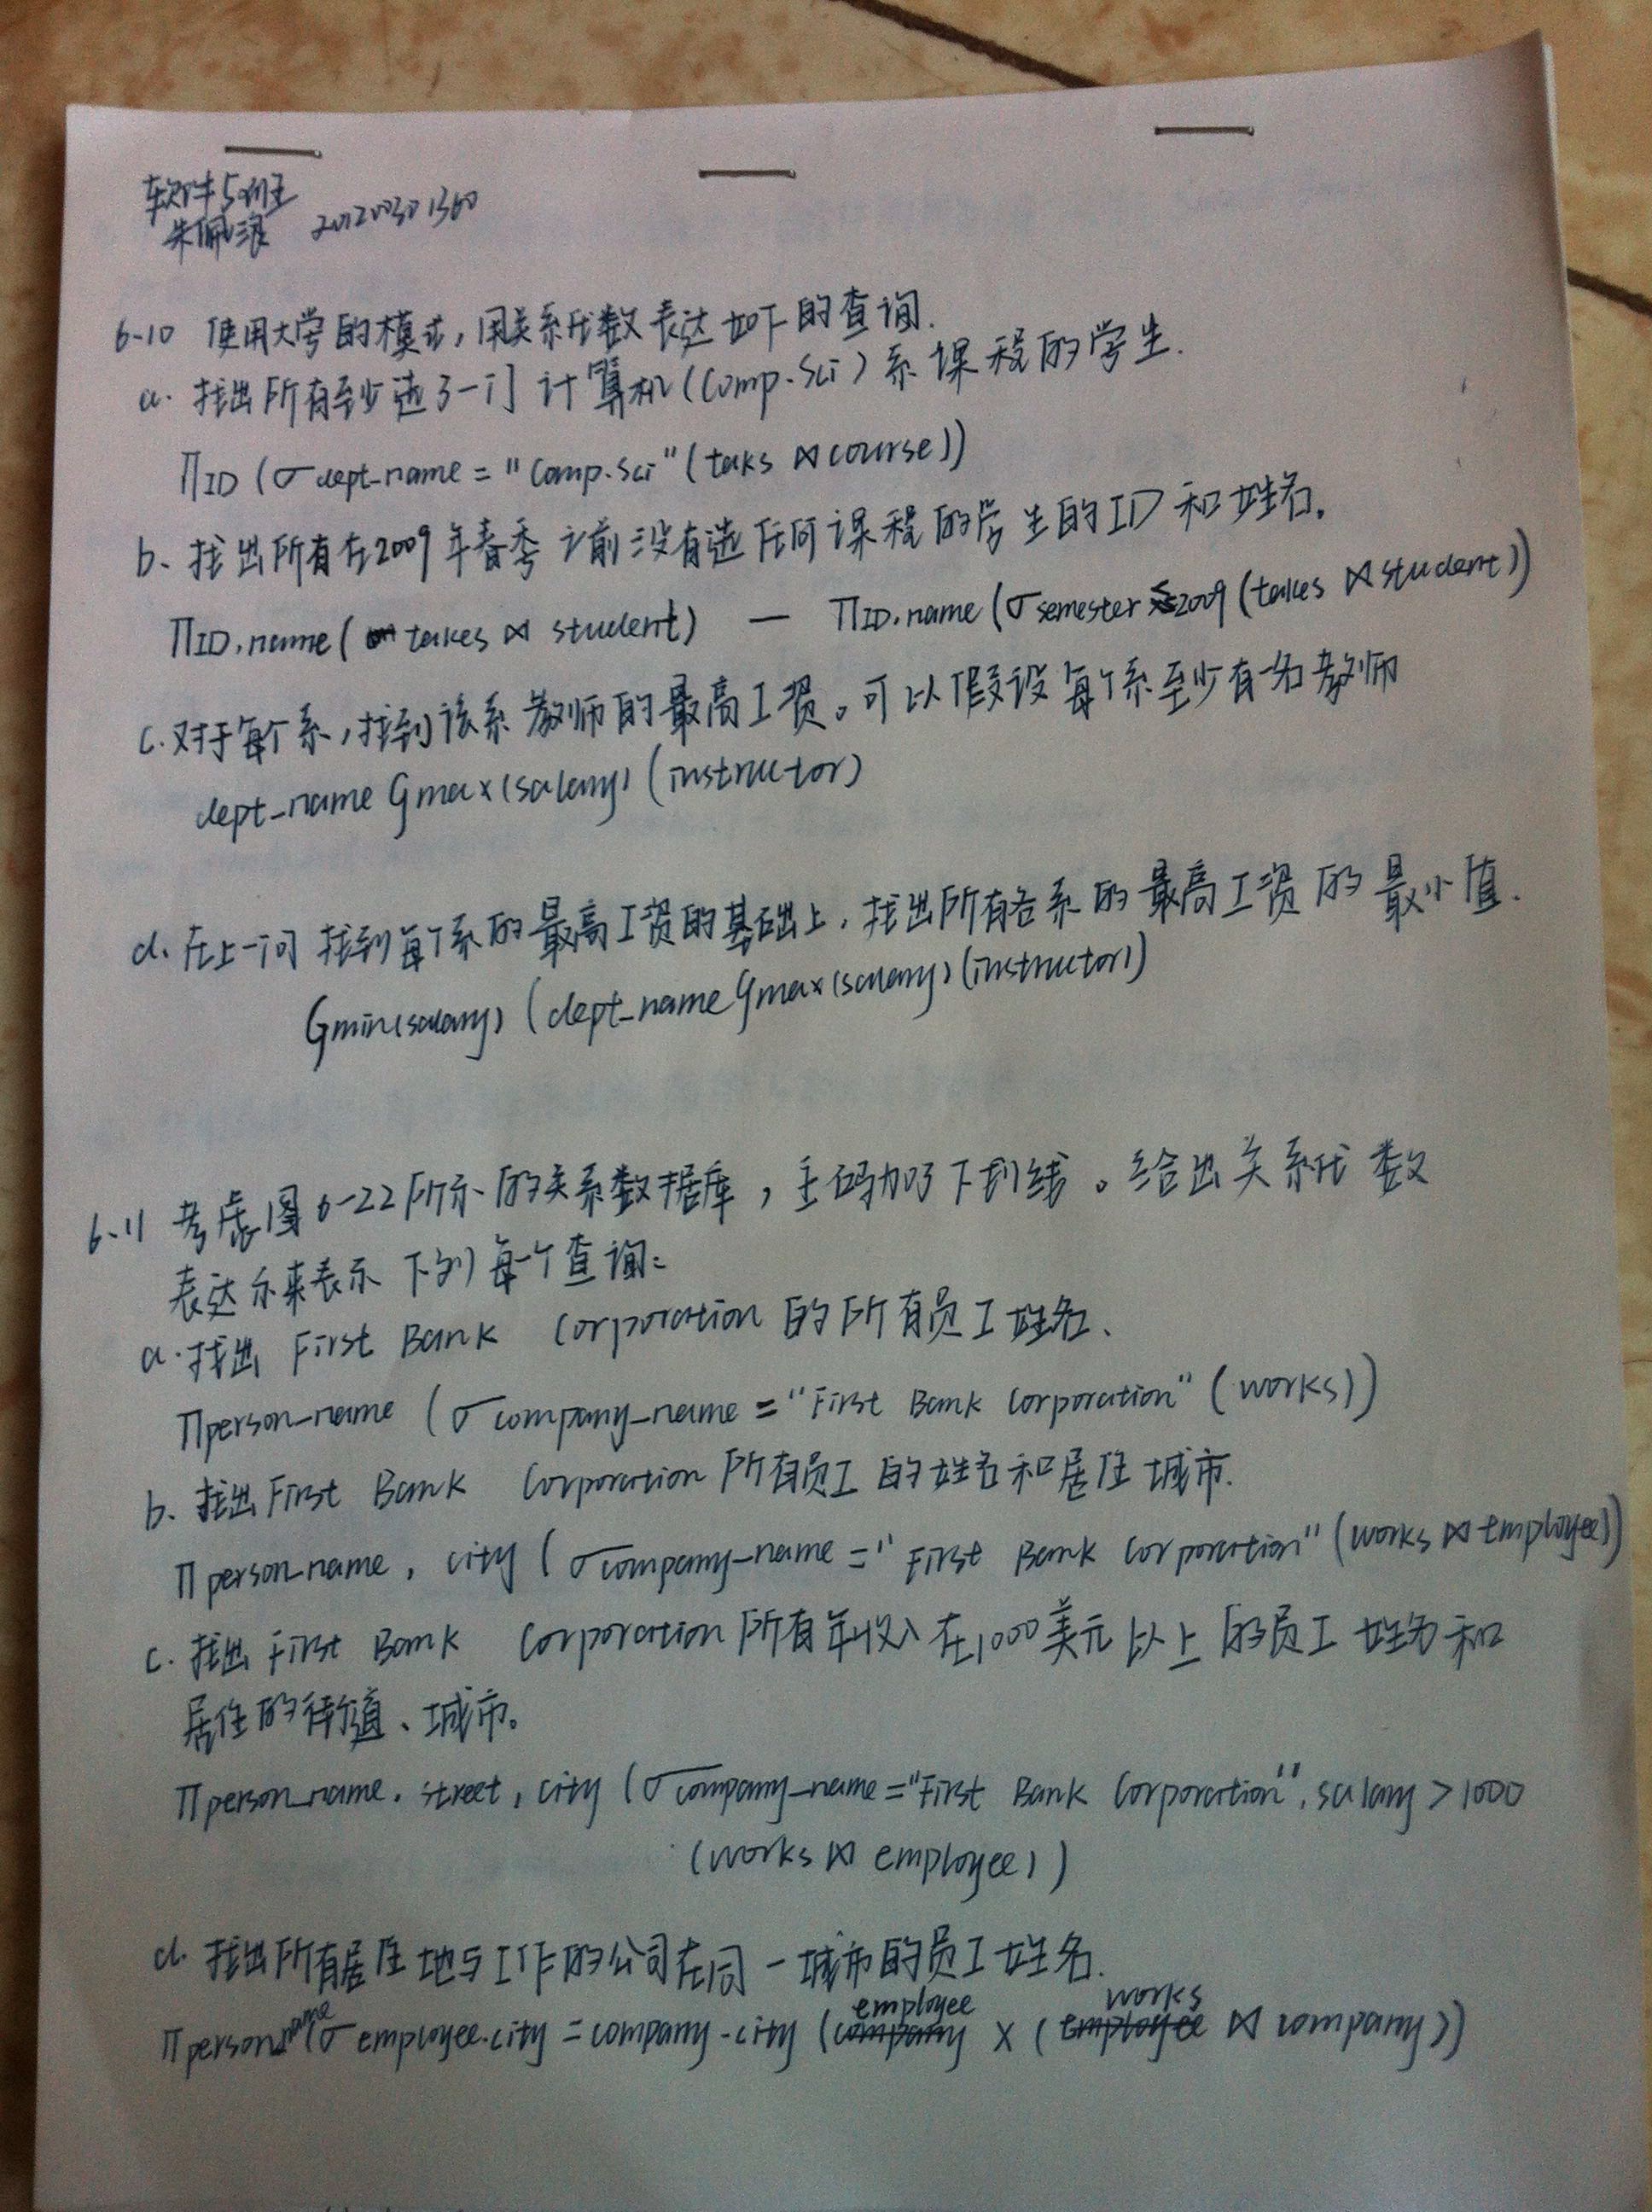 软件5班
朱佩浪 201200301360
6-10 使用大学的模式,用关系代数表达如下的查询.
a. 找出所有至少选了一门计算机(Comp.Sci)系课程的学生.
ΠID(σdept_name="Comp.Sci"(taks⋈course))
b. 找出所有在2009年春季之前没有选任何课程的学生的ID和姓名。
ΠID,name(takes⋈student) — ΠID,name(σsemester≤2009(takes⋈student))
c.对于每个系,找到该系教师的最高工资。可以假设每个系至少有一名教师
dept_name Gmax(salary)(instructor)
d.在上一问找到每个系的最高工资的基础上,找出所有各系的最高工资的最小值.
Gmin(salary)(dept_name Gmax(salary)(instructor))
6-11 考虑图6-22所示的关系数据库,主码加了下划线。给出关系代数
表达示来表示下列每个查询:
a.找出 First Bank Corporation的所有员工姓名、
Πperson_name(σcompany_name="First Bank Corporation"(works))
b. 找出First Bank Corporation所有员工的姓名和居住城市.
Πperson_name, city(σcompany_name="First Bank Corporation"(works⋈employee))
c. 找出First Bank Corporation所有年收入在1000美元以上的员工姓名和
居住的街道、城市。
Πperson_name, street, city(σcompany_name="First Bank Corporation", salary>1000
(works⋈employee))
d. 找出所有居住地与工作的公司在同一城市的员工姓名.
Πperson_name(σemployee.city=company.city(employee×(works⋈company))